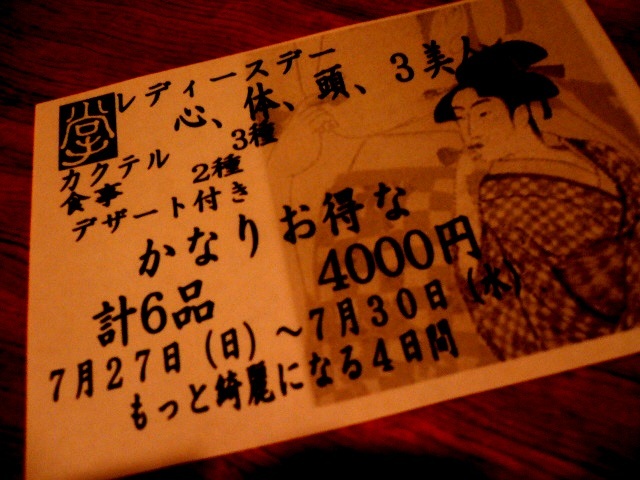 レディースデー
心、体、頭、3美人
カクテル 3種
食事 2種
デザート付き
かなりお得な
計6品 4000円
7月27日(日)~7月30日(水)
もっと綺麗になる4日間